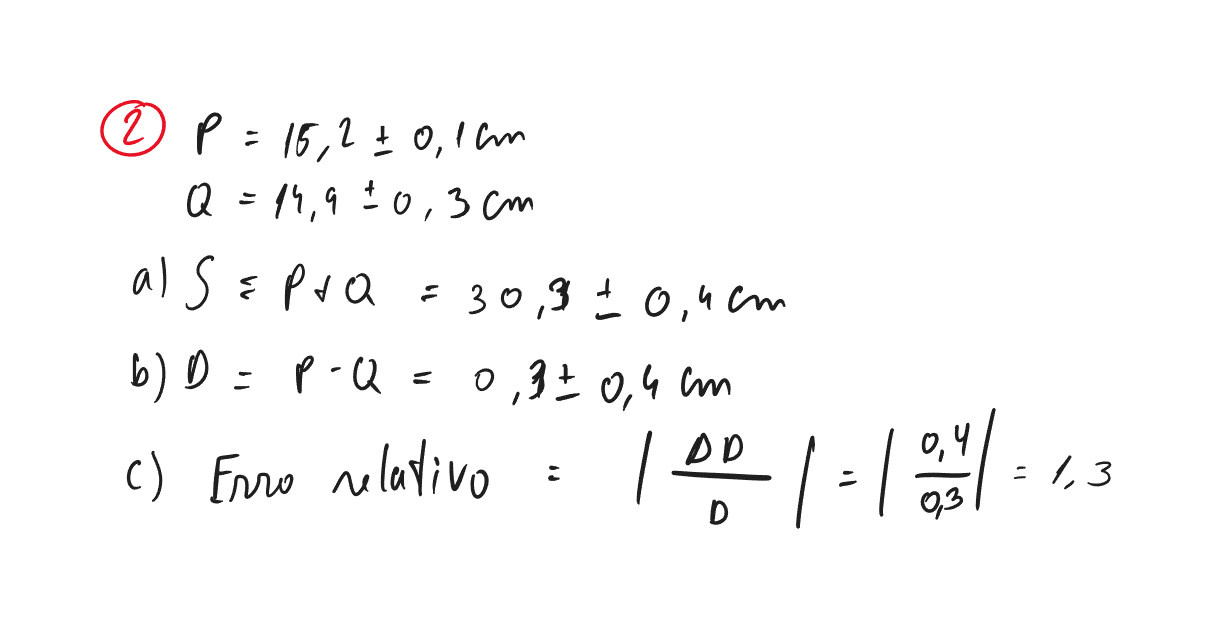 2 P = 15,2 ± 0,1 cm
Q = 14,9 ± 0,3 cm
a) S = P + Q = 30,1 ± 0,4 cm
b) D = P - Q = 0,3 ± 0,4 cm
c) Erro relativo = | ΔD / D | = | 0,4 / 0,3 | = 1,3